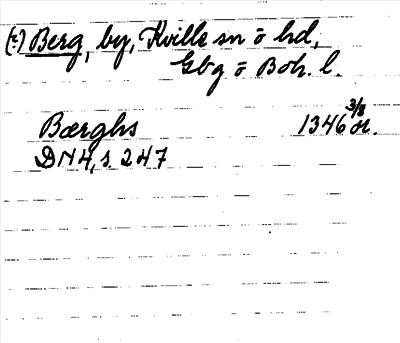 (:) Berg, by, Kville sn o hd,
Gbg o Boh. l.
Bærghs 1346 3/8 or.
DN 4, s. 247